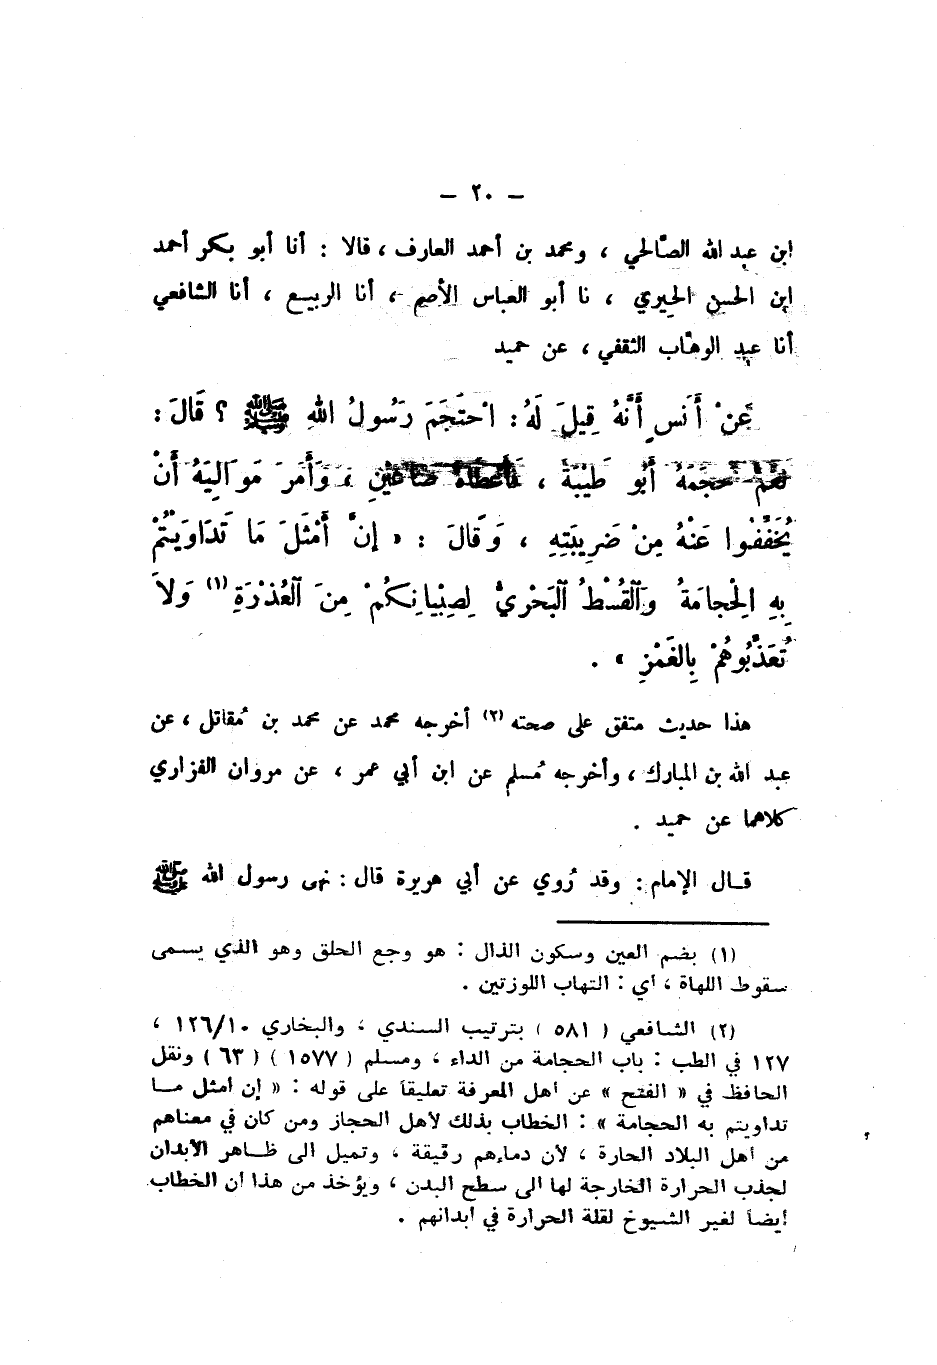 – ٢٠ –
ابن عبد الله الصَّالحي ، ومحمد بن أحمد العارف ، قالا : أنا أبو بكر أحمد
ابن الحسن الحِيري ، نا أبو العباس الأصم ، أنا الربيع ، أنا الشافعي
أنا عبد الوهَّاب الثقفي ، عن حميد
عَنْ أَنَسٍ أَنَّهُ قِيلَ لَهُ : احْتَجَمَ رَسُولُ اللهِ ﷺ ؟ قَالَ :
نَعَمْ حَجَمَهُ أَبُو طَيْبَةَ ، فَأَعْطَاهُ صَاعَيْنِ ، وَأَمَرَ مَوَالِيَهُ أَنْ
يُخَفِّفُوا عَنْهُ مِنْ ضَرِيبَتِهِ ، وَقَالَ : « إِنَّ أَمْثَلَ مَا تَدَاوَيْتُمْ
بِهِ الْحِجَامَةُ وَالْقُسْطُ الْبَحْرِيُّ لِصِبْيَانِكُمْ مِنَ الْعُذْرَةِ (١) وَلَا
تُعَذِّبُوهُمْ بِالْغَمْزِ » .
هذا حديث متفق على صحته (٢) أخرجه محمد عن محمد بن مُقاتل ، عن
عبد الله بن المبارك ، وأخرجه مُسلم عن ابن أبي عمر ، عن مروان الفزاري
كلاهما عن حميد .
قال الإمام : وقد رُوي عن أبي هريرة قال : نهى رسول الله ﷺ
(١) بضم العين وسكون الذال : هو وجع الحلق وهو الذي يسمى
سقوط اللهاة ، أي : التهاب اللوزتين .
(٢) الشافعي ( ٥٨١ ) بترتيب السندي ، والبخاري ١٢٦/١٠ ،
١٢٧ في الطب : باب الحجامة من الداء ، ومسلم ( ١٥٧٧ ) ( ٦٣ ) ونقل
الحافظ في « الفتح » عن أهل المعرفة تعليقاً على قوله : « إن أمثل ما
تداويتم به الحجامة » : الخطاب بذلك لأهل الحجاز ومن كان في معناهم
من أهل البلاد الحارة ، لأن دماءهم رقيقة ، وتميل الى ظاهر الأبدان
لجذب الحرارة الخارجة لها الى سطح البدن ، ويؤخذ من هذا أن الخطاب
أيضاً لغير الشيوخ لقلة الحرارة في أبدانهم .